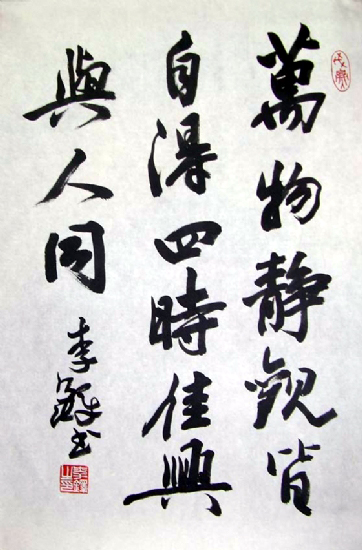 萬物静觀皆
自得四時佳興
與人同
李鐸书